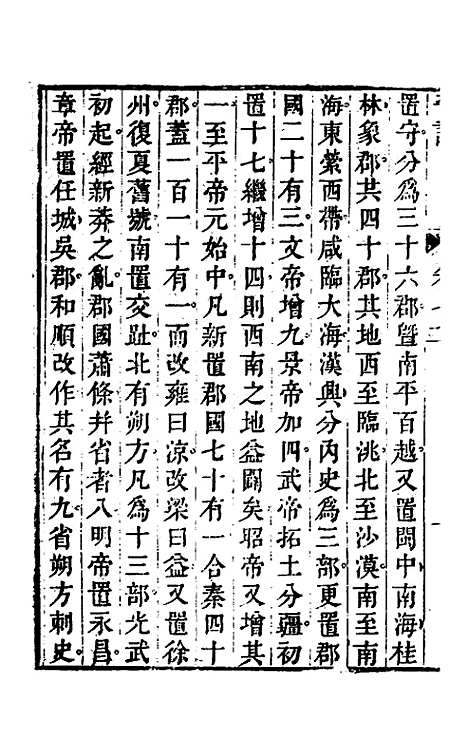 置守分爲三十六郡暨南平百越又置閩中南海桂
林象郡共四十郡其地西至臨洮北至沙漠南至南
海東縈西帶咸臨大海漢興分內史爲三部更置郡
國二十有三文帝增九景帝加四武帝拓土分疆初
置十七繼增十四則西南之地益闢矣昭帝又增其
一至平帝元始中凡新置郡國七十有一合秦四十
郡蓋一百一十有一而改雍曰涼改梁曰益又置徐
州復夏舊號南置交趾北有朔方凡爲十三部光武
初起經新莽之亂郡國蕭條并省者八明帝置永昌
章帝置任城吳郡和順改作其名有九省朔方刺史